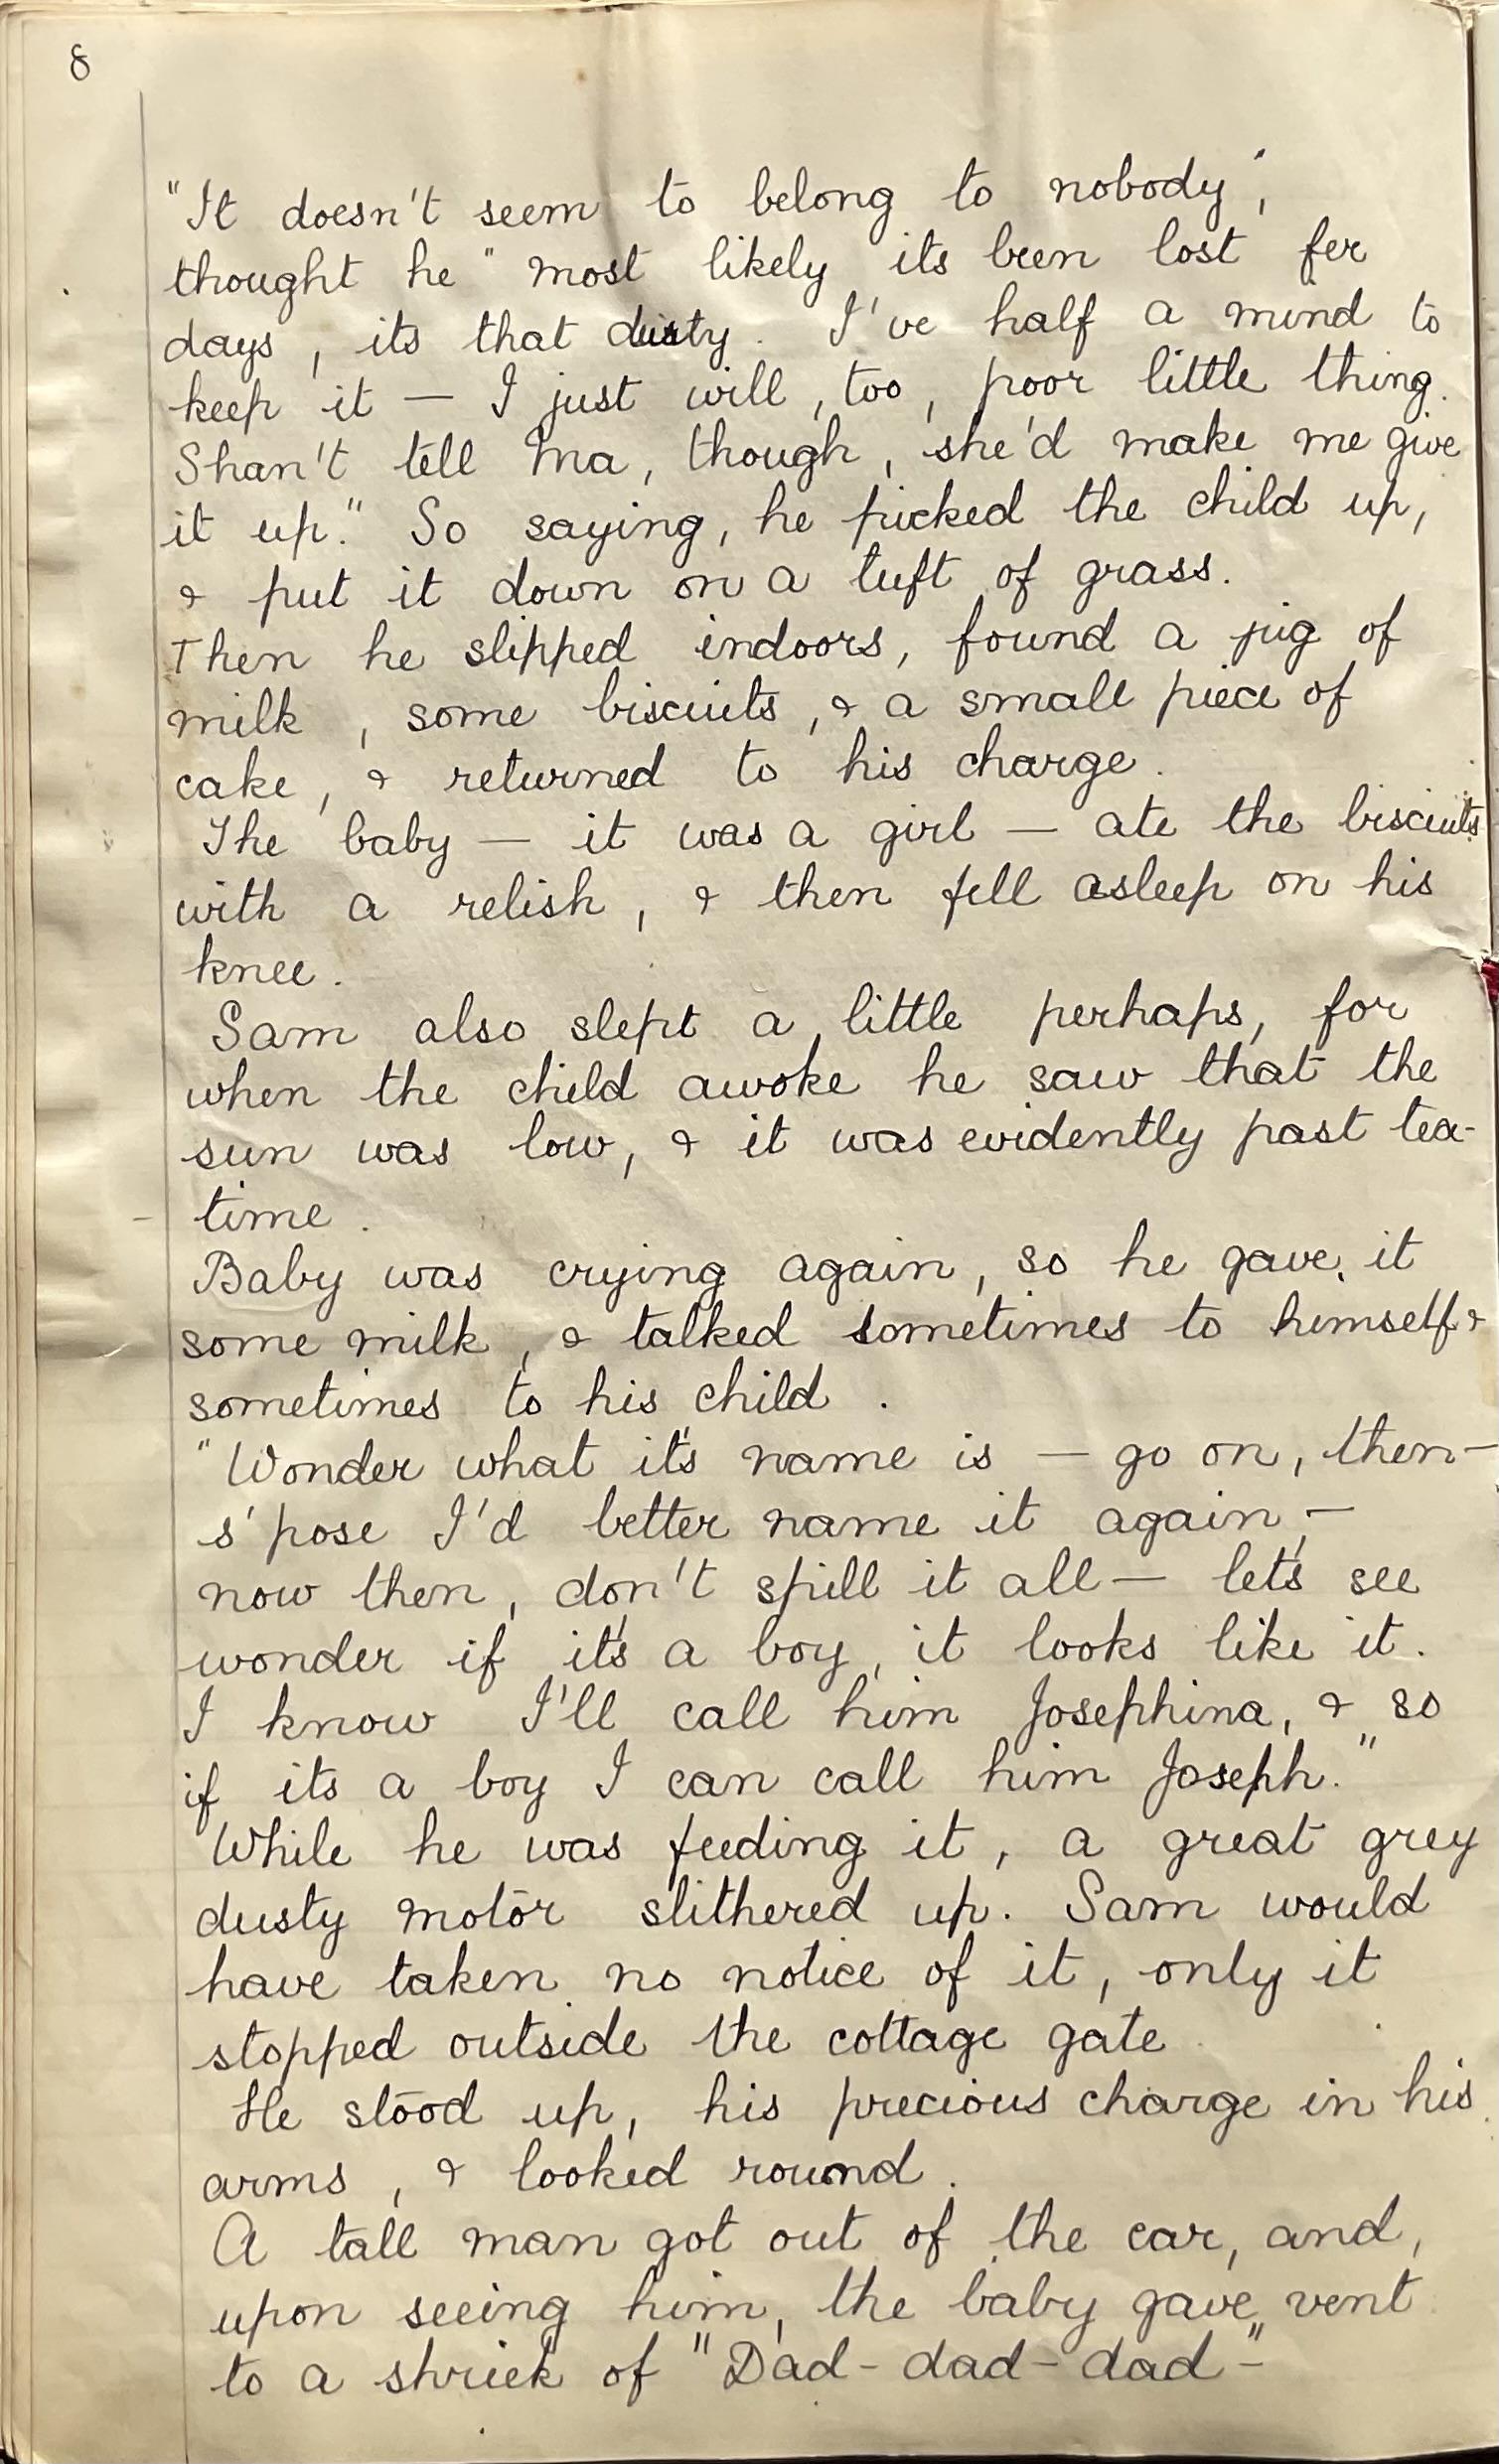 8
"It doesn't seem to belong to nobody",
thought he "most likely its been lost fer
days, its that dusty. I've half a mind to
keep it — I just will, too, poor little thing.
Shan't tell Ma, though, she'd make me give
it up." So saying, he picked the child up,
& put it down on a tuft of grass.
Then he slipped indoors, found a jug of
milk, some biscuits, & a small piece of
cake, & returned to his charge.
The baby — it was a girl — ate the biscuits
with a relish, & then fell asleep on his
knee.
Sam also slept a little perhaps, for
when the child awoke he saw that the
sun was low, & it was evidently past tea-
time.
Baby was crying again, so he gave it
some milk, & talked sometimes to himself &
sometimes to his child.
"Wonder what it's name is — go on, then —
s'pose I'd better name it again, —
now then, don't spill it all — let's see
wonder if it's a boy, it looks like it.
I know I'll call him Josephina, & so
if its a boy I can call him Joseph."
While he was feeding it, a great grey
dusty motor slithered up. Sam would
have taken no notice of it, only it
stopped outside the cottage gate
He stood up, his precious charge in his
arms, & looked round.
A tall man got out of the car, and,
upon seeing him, the baby gave vent
to a shriek of "Dad-dad-dad-"